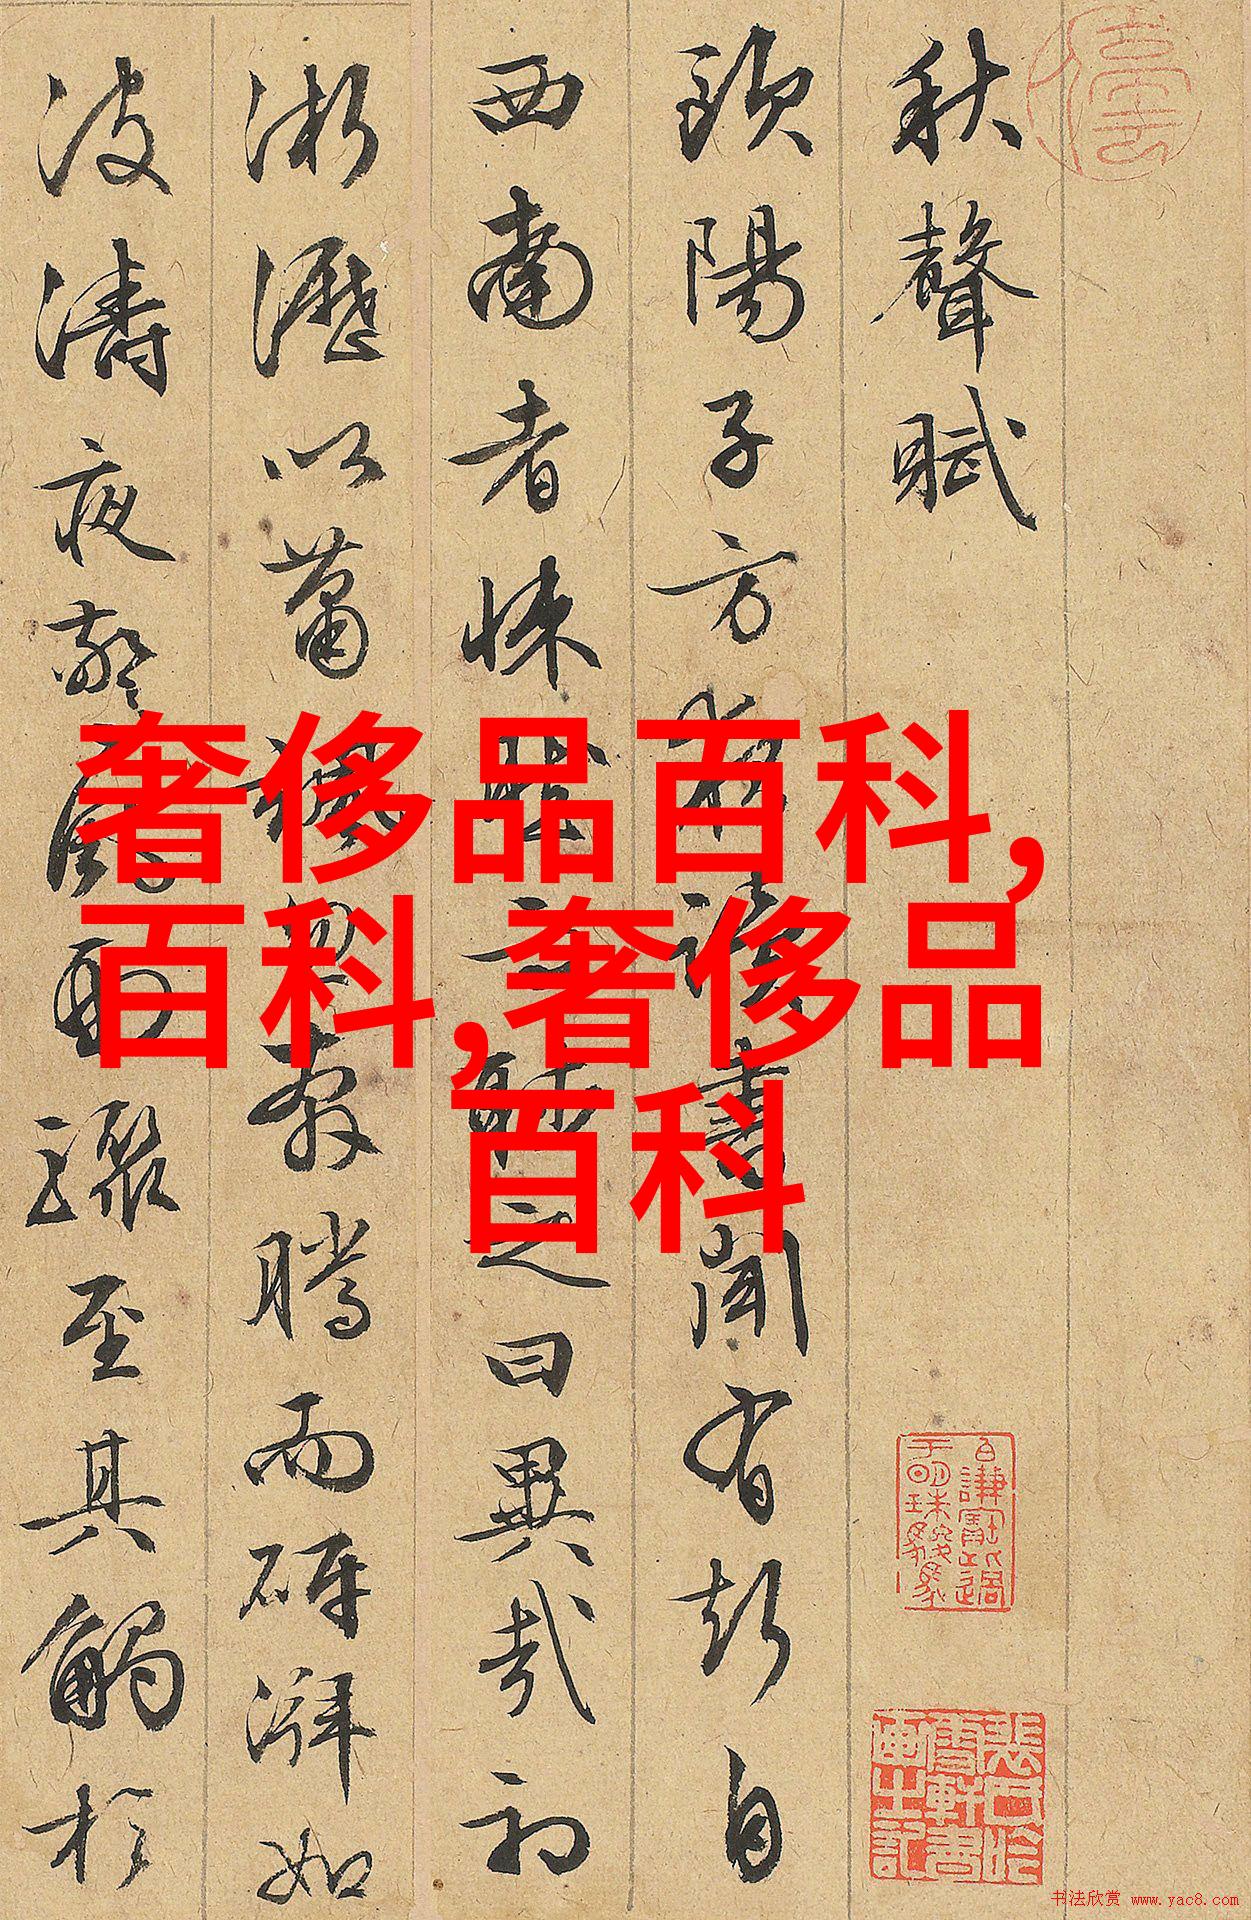 秋聲賦
歐陽子方夜讀書聞有聲自
西南者悚然而聽之曰異哉初
淅瀝以蕭颯忽奔騰而砰湃如
波濤夜驚風雨驟至其觸於
奢侈品百科,
百科,奢侈品
百科
書法欣赏 www.yac8.com